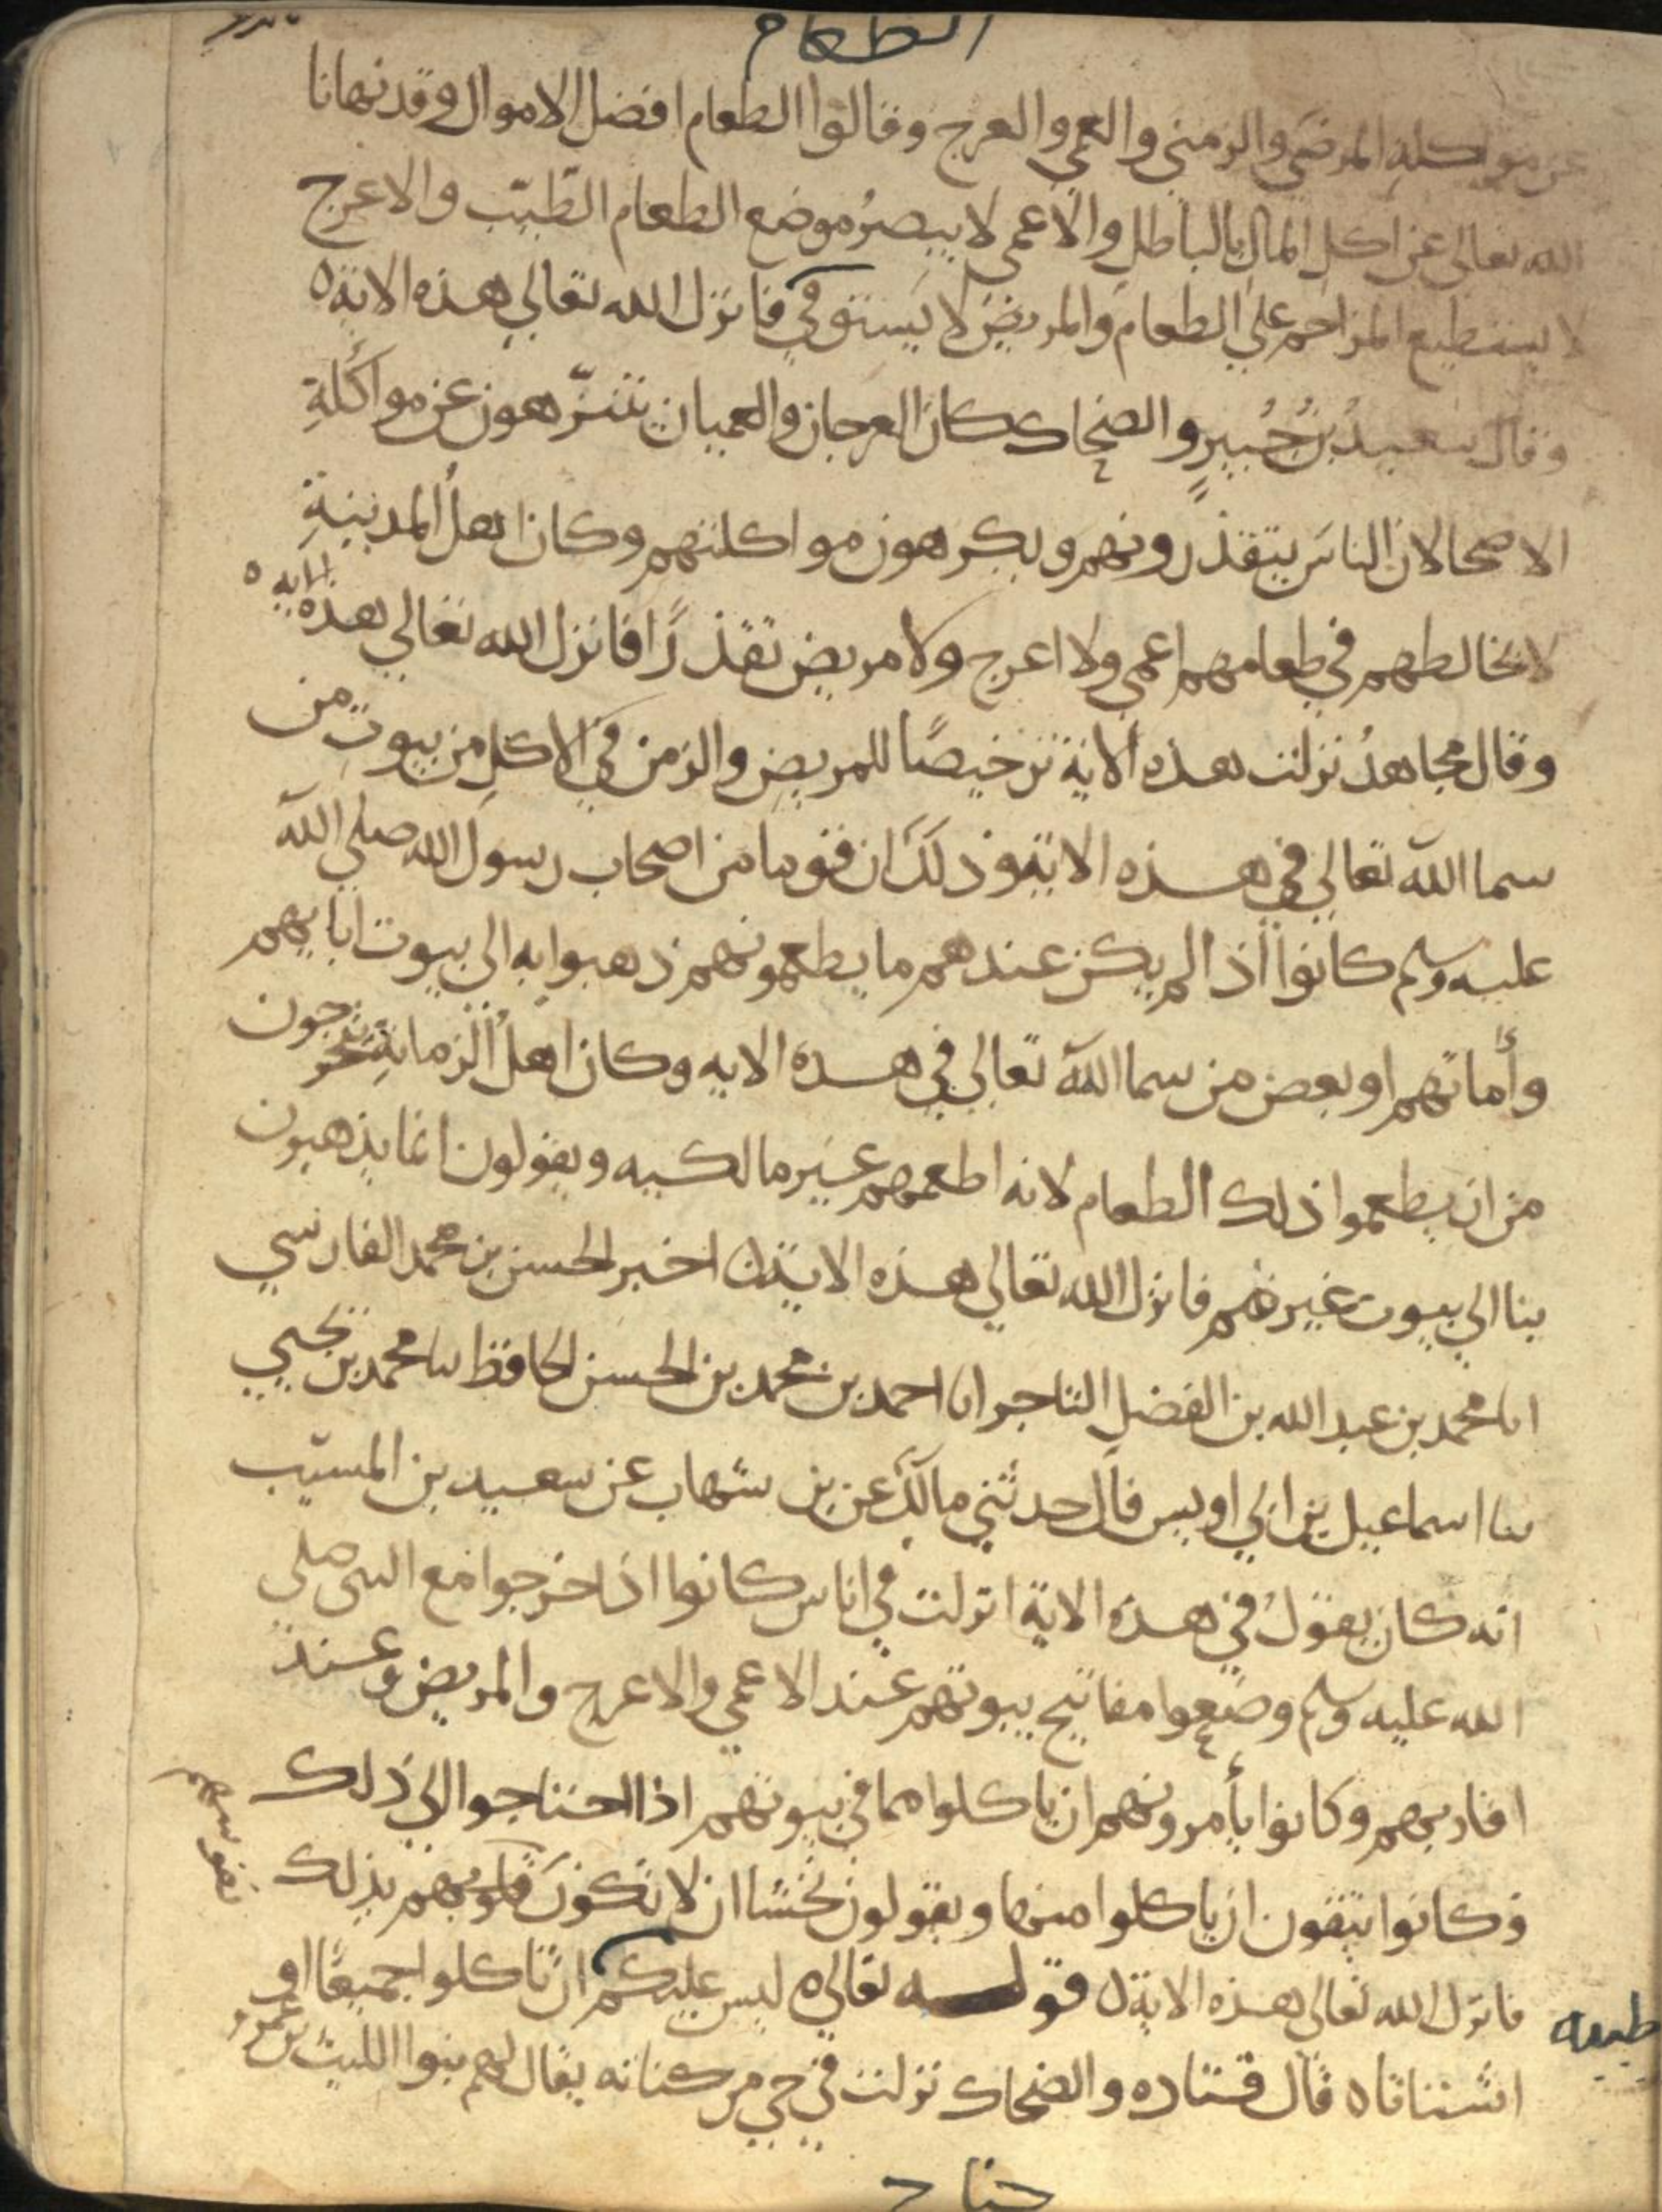 الطعام
عن مواكلة المرضى والزمنى والعمي والعرج وقالوا الطعام افضل الاموال وقد نهانا
الله تعالى عن اكل المال بالباطل والاعمى لا يبصر موضع الطعام الطيّب والاعرج
لا يستطيع المزاحم على الطعام والمريض لا يستوفي فانزل الله تعالى هذه الاية ه
وقال سعيدُ بنُ جُبيرٍ والضحاك كان العرجان والعميان يتنزّهون عن مواكلةِ
الاصحا لان الناسَ يتقذرونهم ويكرهون مواكلتهم وكان اهلُ المدينةِ
لا يخالطهم في طعامهم اعمى ولا اعرج ولا مريض تقذرًا فانزل الله تعالى هذه الايه ه
وقال مجاهدُ نزلت هذه الاية ترخيصًا للمريضِ والزمن في الاكلِ من بيوتِ من
سما الله تعالى في هذه الاية وذلك ان قوما من اصحاب رسول الله صلى الله
عليه وسلم كانوا اذا لم يكن عندهم ما يطعمونهم ذهبوا به الى بيوت ابايهم
وأماتهم او بعض من سما الله تعالى في هذه الايه وكان اهلُ الزمانةِ يتحرجون
من ان يطعموا ذلك الطعام لانه اطعمهم غير مالكيه ويقولون انما يذهبون
بنا الى بيوت غيرهم فانزل الله تعالى هذه الاية ه اخبر الحسن بن محمد الفارسي
انا محمد بن عبد الله بن الفضل التاجر انا احمد بن محمد بن الحسن الحافظ ثنا محمد بن يحيي
ثنا اسماعيل بن ابي اويس قال حدثني مالك عن بن شهاب عن سعيد بن المسيّب
انه كان يقول في هذه الاية انزلت في اناس كانوا اذا خرجوا مع النبي صلى
الله عليه وسلم وضعوا مفاتيح بيوتهم عند الاعمى والاعرج والمريض وعند
اقاربهم وكانوا يأمرونهم ان ياكلوا مما في بيوتهم اذا احتاجوا الى ذلك
وكانوا يتقون ان ياكلوا منها ويقولون نخشا ان لا تكونَ قلوبهم بذلك
نفوسهم
طيبه
فانزل الله تعالى هذه الاية ه قوله تعالى ه ليس عليكم ان تاكلوا جميعًا او
اشتاتا ه قال قتاده والضحاك نزلت في حي من كنانه يقال لهم بنوا الليث بن عمرو
جناح